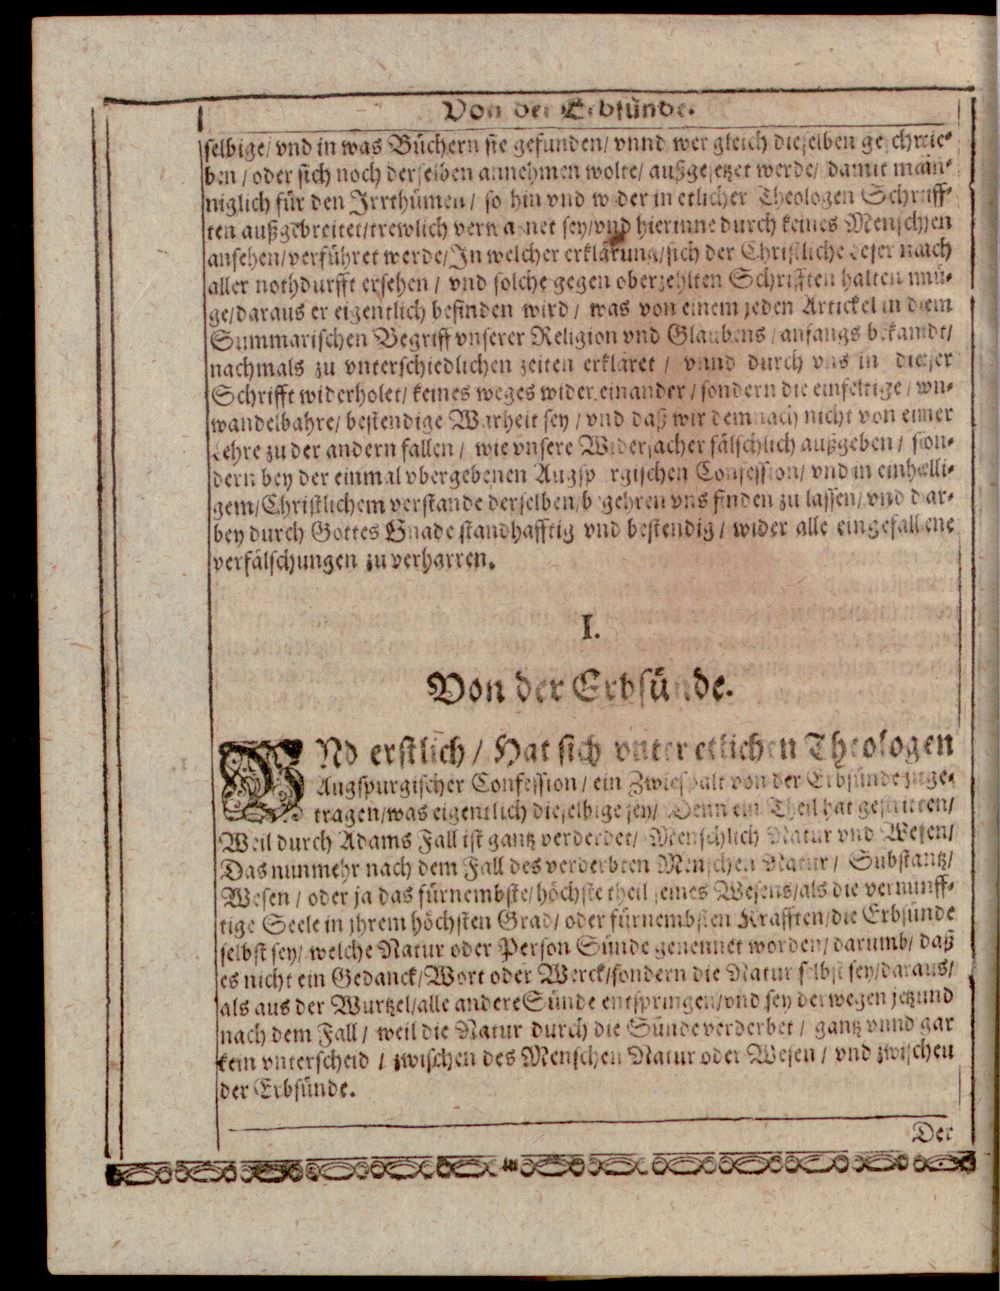 Von der Erbsünde.
selbige/ vnd in was Büchern sie gefunden/ vnnd wer gleich dieselben geschrie-
ben / oder sich noch derselben annehmen wolte/ außgesetzet werde/ damit mäin-
niglich für den Irrthümen / so hin vnd wider in etlicher Theologen Schriff-
ten außgebreitet/trewlich verwarnet sey/vnd hierinne durch keines Menschen
ansehen/verführet werde/In welcher erklärung/sich der Christliche Leser nach
aller nothdurfft ersehen / vnd solche gegen oberzehlten Schrifften halten mü-
ge/daraus er eigentlich befinden wird / was von einem jeden Artickel in dem
Summarischen Begriff vnserer Religion vnd Glaubens / anfangs bekandt/
nachmals zu vnterschiedlichen zeiten erkläret / vnnd durch vns in dieser
Schrifft widerholet/ keines weges wider einander / sondern die einfeltige / vn-
wandelbahre/ bestendige Warheit sey / vnd daß wir demnach nicht von einer
Lehre zu der andern fallen / wie vnsere Widersacher fälschlich außgeben / son-
dern bey der einmal vbergebenen Augspurgischen Confession/ vnd in einhelli-
gem/Christlichem verstande derselben/begehren vns finden zu lassen/ vnd dar-
bey durch Gottes Gnade standhafftig vnd bestendig / wider alle eingefallene
verfälschungen zu verharren.
I.
Von der Erbsünde.
VNd erstlich / Hat sich vnter etlichen Theologen
Augspurgischer Confession / ein Zwiespalt von der Erbsünde zuge-
tragen/was eigentlich dieselbige sey/ Denn ein Theil hat gestritten/
Weil durch Adams Fall ist gantz verderbet/ Menschlich Natur vnd Wesen/
Das nunmehr nach dem Fall des verderbten Menschen Natur / Substantz/
Wesen / oder ja das fürnembste/höchste theil seines Wesens/als die vernünff-
tige Seele in ihrem höchsten Grad/ oder fürnembsten Krafften/die Erbsünde
selbst sey/ welche Natur oder Person Sünde genennet worden/ darumb/ daß
es nicht ein Gedanck/Wort oder Werck/sondern die Natur selbst sey/daraus/
als aus der Wurtzel/alle andere Sünde entspringen/vnd sey derwegen jetzund
nach dem Fall / weil die Natur durch die Sünde verderbet / gantz vnnd gar
kein vnterscheid / zwischen des Menschen Natur oder Wesen / vnd zwischen
der Erbsünde.
Der